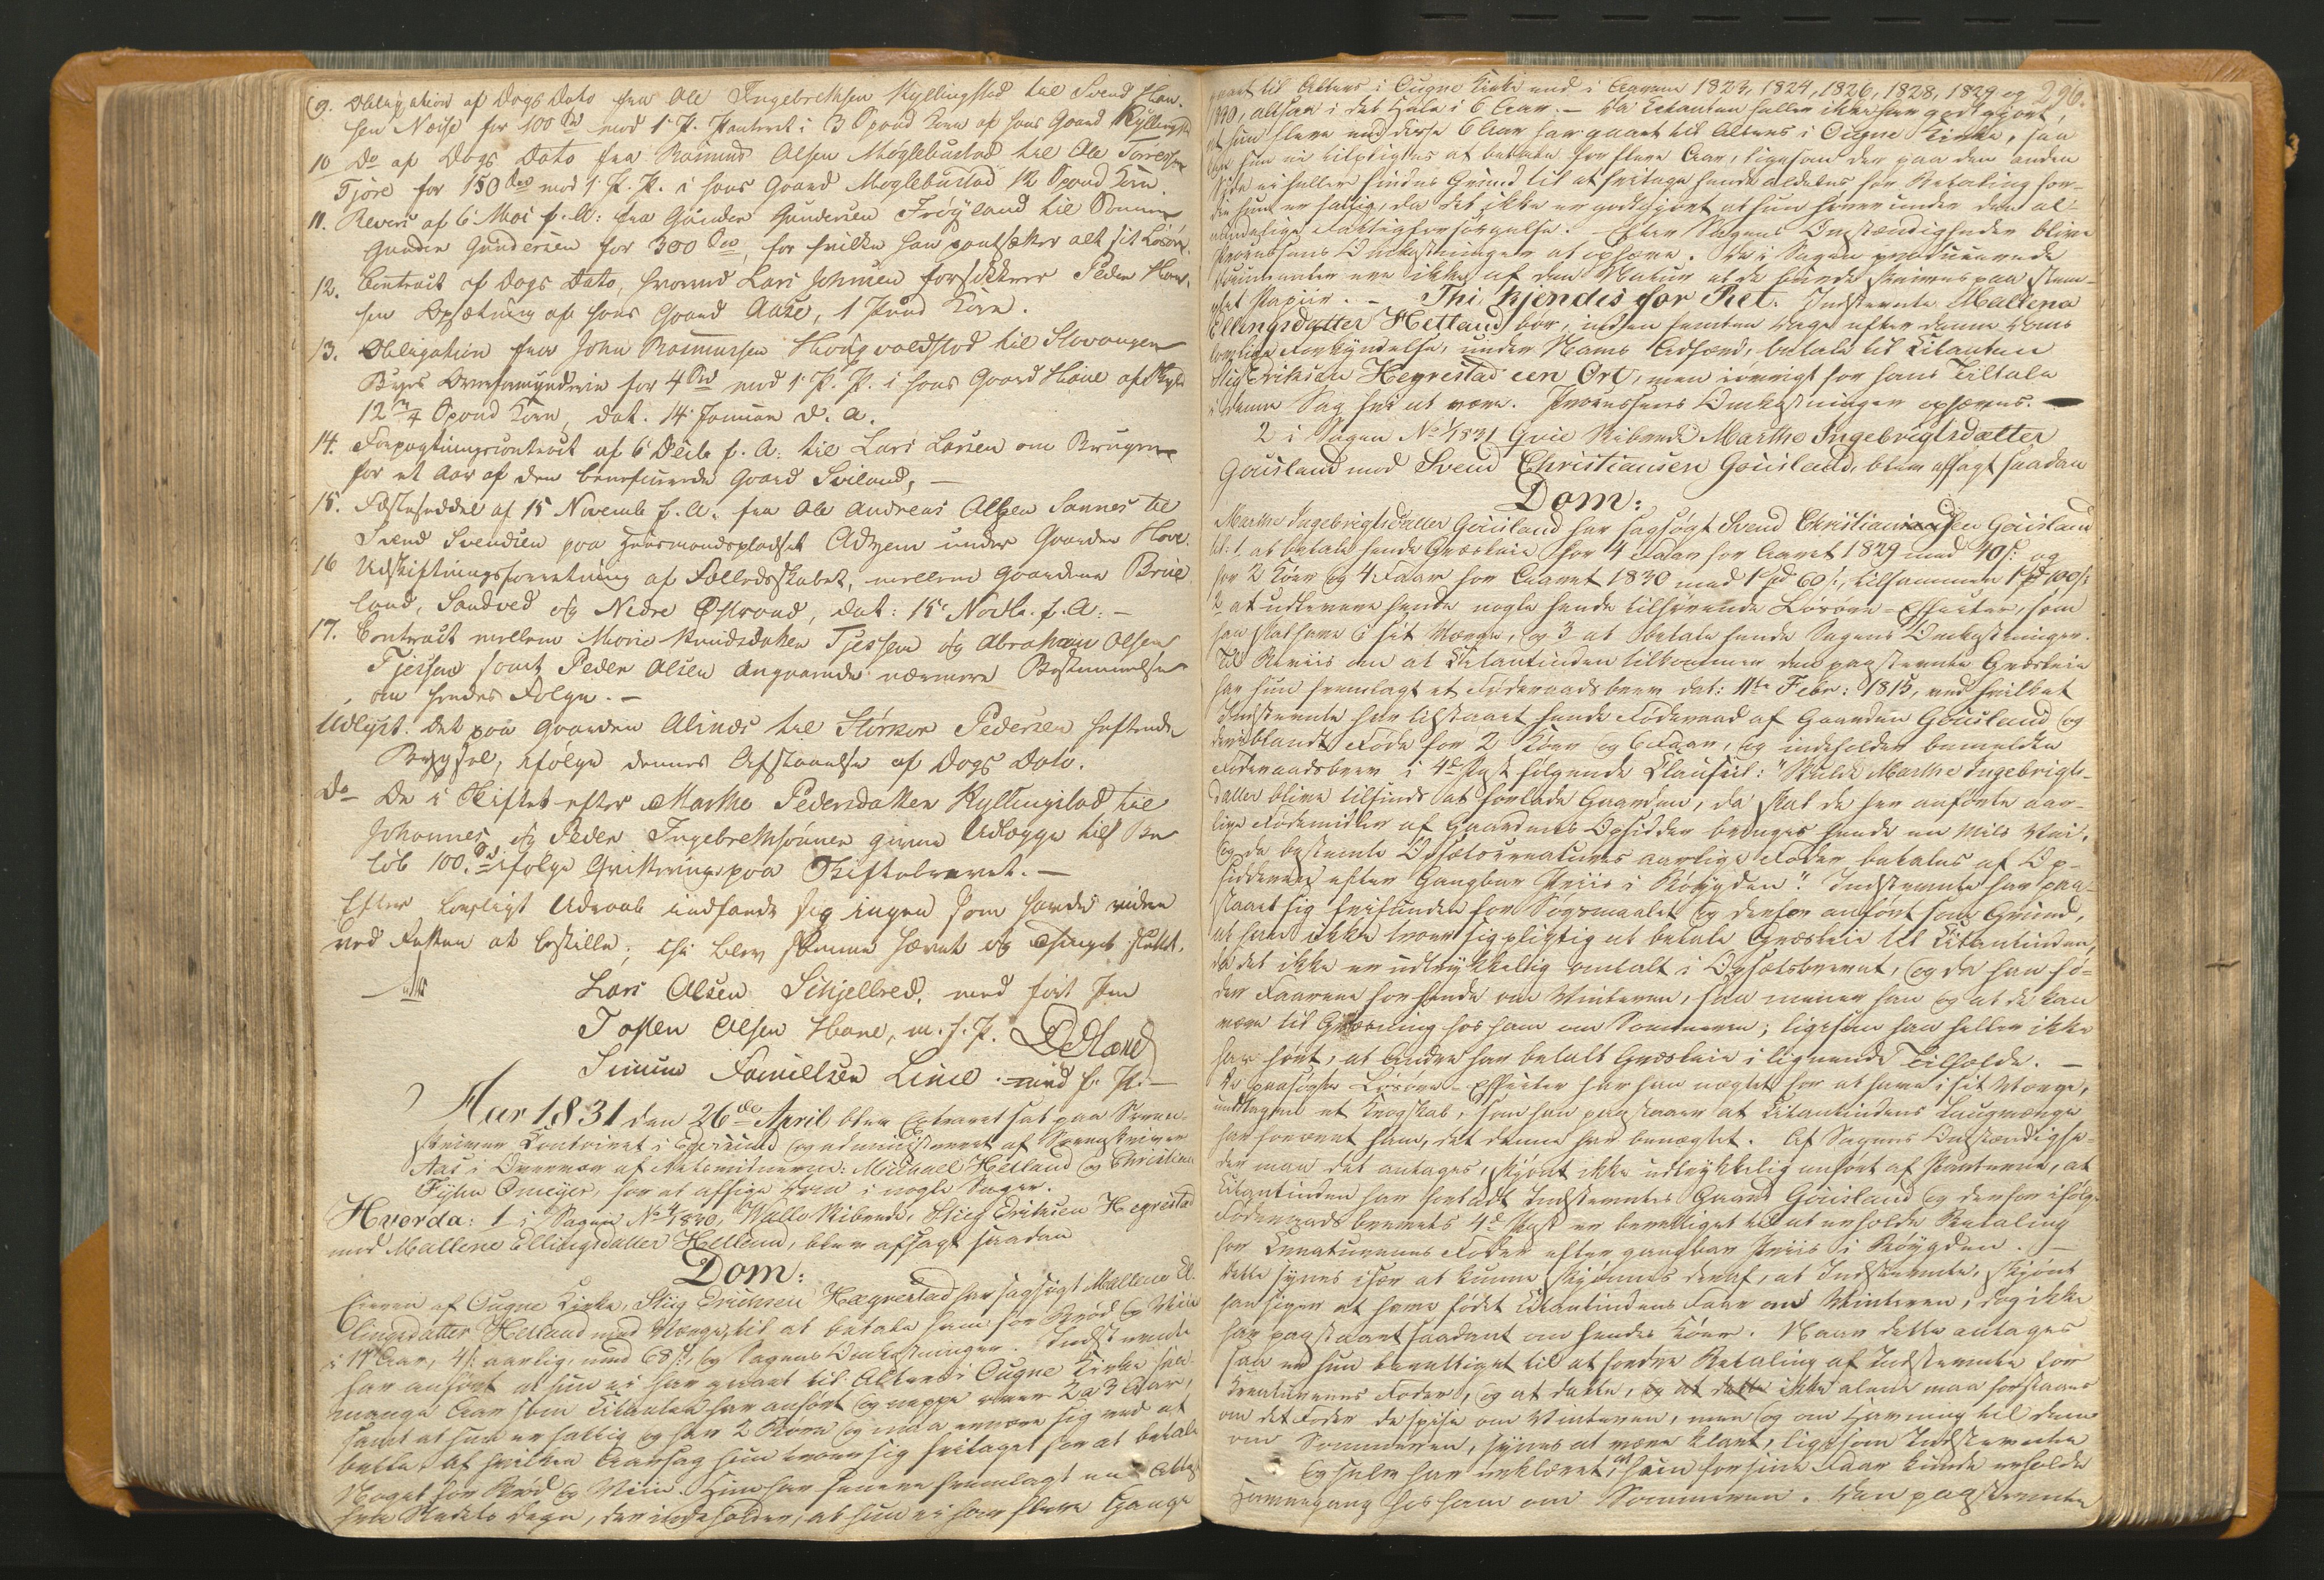 9. Obligation af Dags Dato fra Ole Ingebrethsen Kyllingstad til Svend Han-
sen Næse for 100 Spd mod 1' P. Panteret i 3 Spand Korn af hans Gaard Kyllingstad
10 Do af Dags Dato fra Rasmus Olsen Møglebustad til Ole Torressen
Tjøre for 150 Spd mod 1' P. P. i hans Gaard Møglebustad 12 Spand Korn.
11. Revers af 6' Mai f. A: fra Gunder Gundersen Frøyland til Sønnen
Gunder Gundersen for 300 Spd, for hvilke han pantsætter alt sit Løsøre.
12. Contract af Dags Dato, hvorved Lars Johnsen forsikkrer Peder Han-
sen Opsætning af hans Gaard Aase, 1 Pund Korn.
13. Obligation fra John Rasmussen Houg voldstad til Stavanger
Byes Overformynderie for 4 Spd mod 1' P. P. i hans Gaard Haane af Skyld
12 Spand Korn, dat. 14' Januar d. a.
14. Forpagtningscontract af 6' Decbr f. A: til Lars Larsen om Brugen
for et Aar af den beneficerede Gaard Sviland, —
15. Fæsteseddel af 15 Novemb f. A. fra Ole Andreas Olsen Sannes til
Svend Svendsen paa Huusmandspladset Adzem under Gaarden Hove.
16 Udskiftningsforretning af Fælledsskabet, mellem Gaardene Brue
land, Sandved og Nedre Østraad, dat: 15' Novbr. f. A: —
17. Contract mellem Marie Knudsdatter Tjessem og Abraham Olsen
Tjessem samt Peder Olsen angaaende nærmere Bestemmelse
om hendes Følge. —
Udlyst. Det paa Gaarden Alnæs til Størkor Pedersen heftende
Bygsel, ifølge dennes Afstaaelse af Dags Dato.
Do De i Skiftet efter Marthe Pedersdatter Kyllingstad til
Johannes og Peder Ingebrethsønner givne Udlægge til Be
løb 100 Spd ifølge Qvittering paa Skiftebrevet. —
Efter lovligt Udraab indfandt sig ingen som havde videre
ved Retten at bestille; thi blev samme hævet og Thinget sluttet.
Lars Olsen Schjelbred, med ført Pen
Tosten Olsen Hane, m. f. P. DHanc
Simon Danielsen Lime med f. P. —
Aar 1831 den 26de April blev Extraret sat paa Soren-
skriver Contoiret i Egersund og administreret af Sorenskriver
Aas i Overvær af Retsvidnerne: Michael Hetland og Christian
Fylen Omeyer, for at afsige Dom i nogle Sager.
Hvorda: 1 i Sagen No 4/1830, Walle Skibrede, Stiig Eriksen Hegrestad
mod Mallene Ellingsdatter Hetland, blev afsagt saadan
Dom:
Eieren af Ougne Kirke, Stiig Erichsen Hægrestad har sagsøgt Mallene El-
lingsdatter Hetland med Værge, til at betale ham for Brød og Viin
i 17 Aar, 4 s: aarlig, med 68 s:, og Sagens Omkostninger. Indstevnte
har anført at hun ei har gaaet til Alters i Ougne Kirke saa
mange Aar som Citanten har anført og neppe over 2 a 3 Aar,
samt at hun er fattig og har 2 Børn og maa ernære sig ved at
betle; at hvilken Aarsag hun troer sig fritaget for at betale
Noget for Brød og Viin. Hun har senere fremlagt en Attest
fra Stedets Degn, der indeholder, at hun ei har flere Gange
296.
gaaet til Alters i Ougne Kirke end i Aarene 1823, 1824, 1826, 1828, 1829 og
1830, altsaa i det Hele i 6 Aar. — Da Citanten heller ikke har godtgjort,
at hun flere end disse 6 Aar har gaaet til Alters i Ougne Kirke, saa
bør hun ei tilpligtes at betale for flere Aar, ligesom der paa den anden
Side ei heller findes Grund til at fritage hende aldeles for Betaling for-
di hun er fattig, da det ikke er godtgjort at hun henører under den al-
mindelige Fattigforsørgelse. Efter Sagens Omstændigheder blive
Processens Omkostninger at ophæve. De i Sagen producerende
Documenter ere ikke af den Natur at de burde skrives paa stem-
plet Papiir. — Thi kjendes for Ret. Indstevnte Mallena
Ellingsdatter Hetland bør, inden femten Dage efter denne Doms
lovlige Forkyndelse, under Nams Adfærd, betale til Citanten
Stig Eriksen Hegrestad een Ort, men iøvrigt for hans Tiltale
i denne Sag frie at være. Processens Omkostninger ophæves. —
2 i Sagen No 1/1831 Qvie Skibrede Marthe Ingebrigtsdatter
Gousland mod Svend Christiansen Gousland, blev afsagt saadan
Dom:
Marthe Ingebrigtsdatter Gousland har sagsøgt Svend Christiansen Gousland
til: 1. at betale hende Græsleie for 4 Faar for Aaret 1829 med 40 s: og
for 2 Køer og 4 Faar for Aaret 1830 med 1 Spd 60 s:, tilsammen 1 Spd 100 s:
2, at udlevere hende nogle hende tilhørende Løsøre-Effecter, som
han skal have i sit Værge, og 3 at betale hende Sagens Omkostninger.
Til Beviis om at Citantinden tilkommer den paastevnte Græsleie
har hun fremlagt et Føderaadsbrev dat: 11te Febr: 1815, ved hvilket
Indstevnte har tilstaaet hende Føderaad af Gaarden Gousland og
deriblandt Føde for 2 Køer og 6 Faar, og indeholder bemeldte
Føderaadsbrev i 4de Post følgende Clausul: "Skulde Marthe Ingebrigts-
datter blive tilsinds at forlade Gaarden, da skal de her anførte aar-
lige Fødemidler af Gaardens Opsidder bringes hende en Miils Vei,
og de bestemte Opsætscreatures aarlige Foder betales af Op-
sidderen efter Gangbar Priis i Bøigden". Indstevnte har paa-
staaet sig frifunden for Søgsmaalet og derfor anført som Grund,
at han ikke troer sig pligtig at betale Græsleie til Citantinden,
da det ikke er udtrykkelig omtalt i Opsætsbrevet, og da han fø-
der Faarene for hende om Vinteren, saa mener han og at de kan
være til Græsning hos ham om Sommeren; ligesom han heller ikke
har hørt, at Andre har betalt Græsleie i lignende Tilfælde. —
De paasøgte Løsøre-Effecter har han nægtet for at have i sit Værge,
undtagen et Krogskab, som han paastaaer at Citantindens Laugværge
har foræret ham, det denne har benægtet. Af Sagens Omstændighe-
der maa det antages, skjønt ikke udtrykkelig anført af Parterne, at
Citantinden har forladt Indstevntes Gaard Gousland og derfor ifølge
Føderaadsbrevets 4de Post er berettiget til at erholde Betaling
for Creaturenes Foder efter gangbar Priis i Bøigden. —
Dette synes især at kunne skjønnes deraf, at Indstevnte, skjønt
han siger at have födet Citantindens Faar om Vinteren, dog ikke
har paastaaet saadant om hendes Køer. Naar dette antages
saa er hun berettiget til at fordre Betaling af Indstevnte for
Creaturenes Foder, og at dette, og at dette ikke alene maa forstaaes
om det Foder de spise om Vinteren, men og om Havning til dem
om Sommeren, synes at være klart, ligesom Indstevnte
og selv har erklæret, at hun for sine Faar kunde erholde
Havnegang hos ham om Sommeren. Den paastevnte